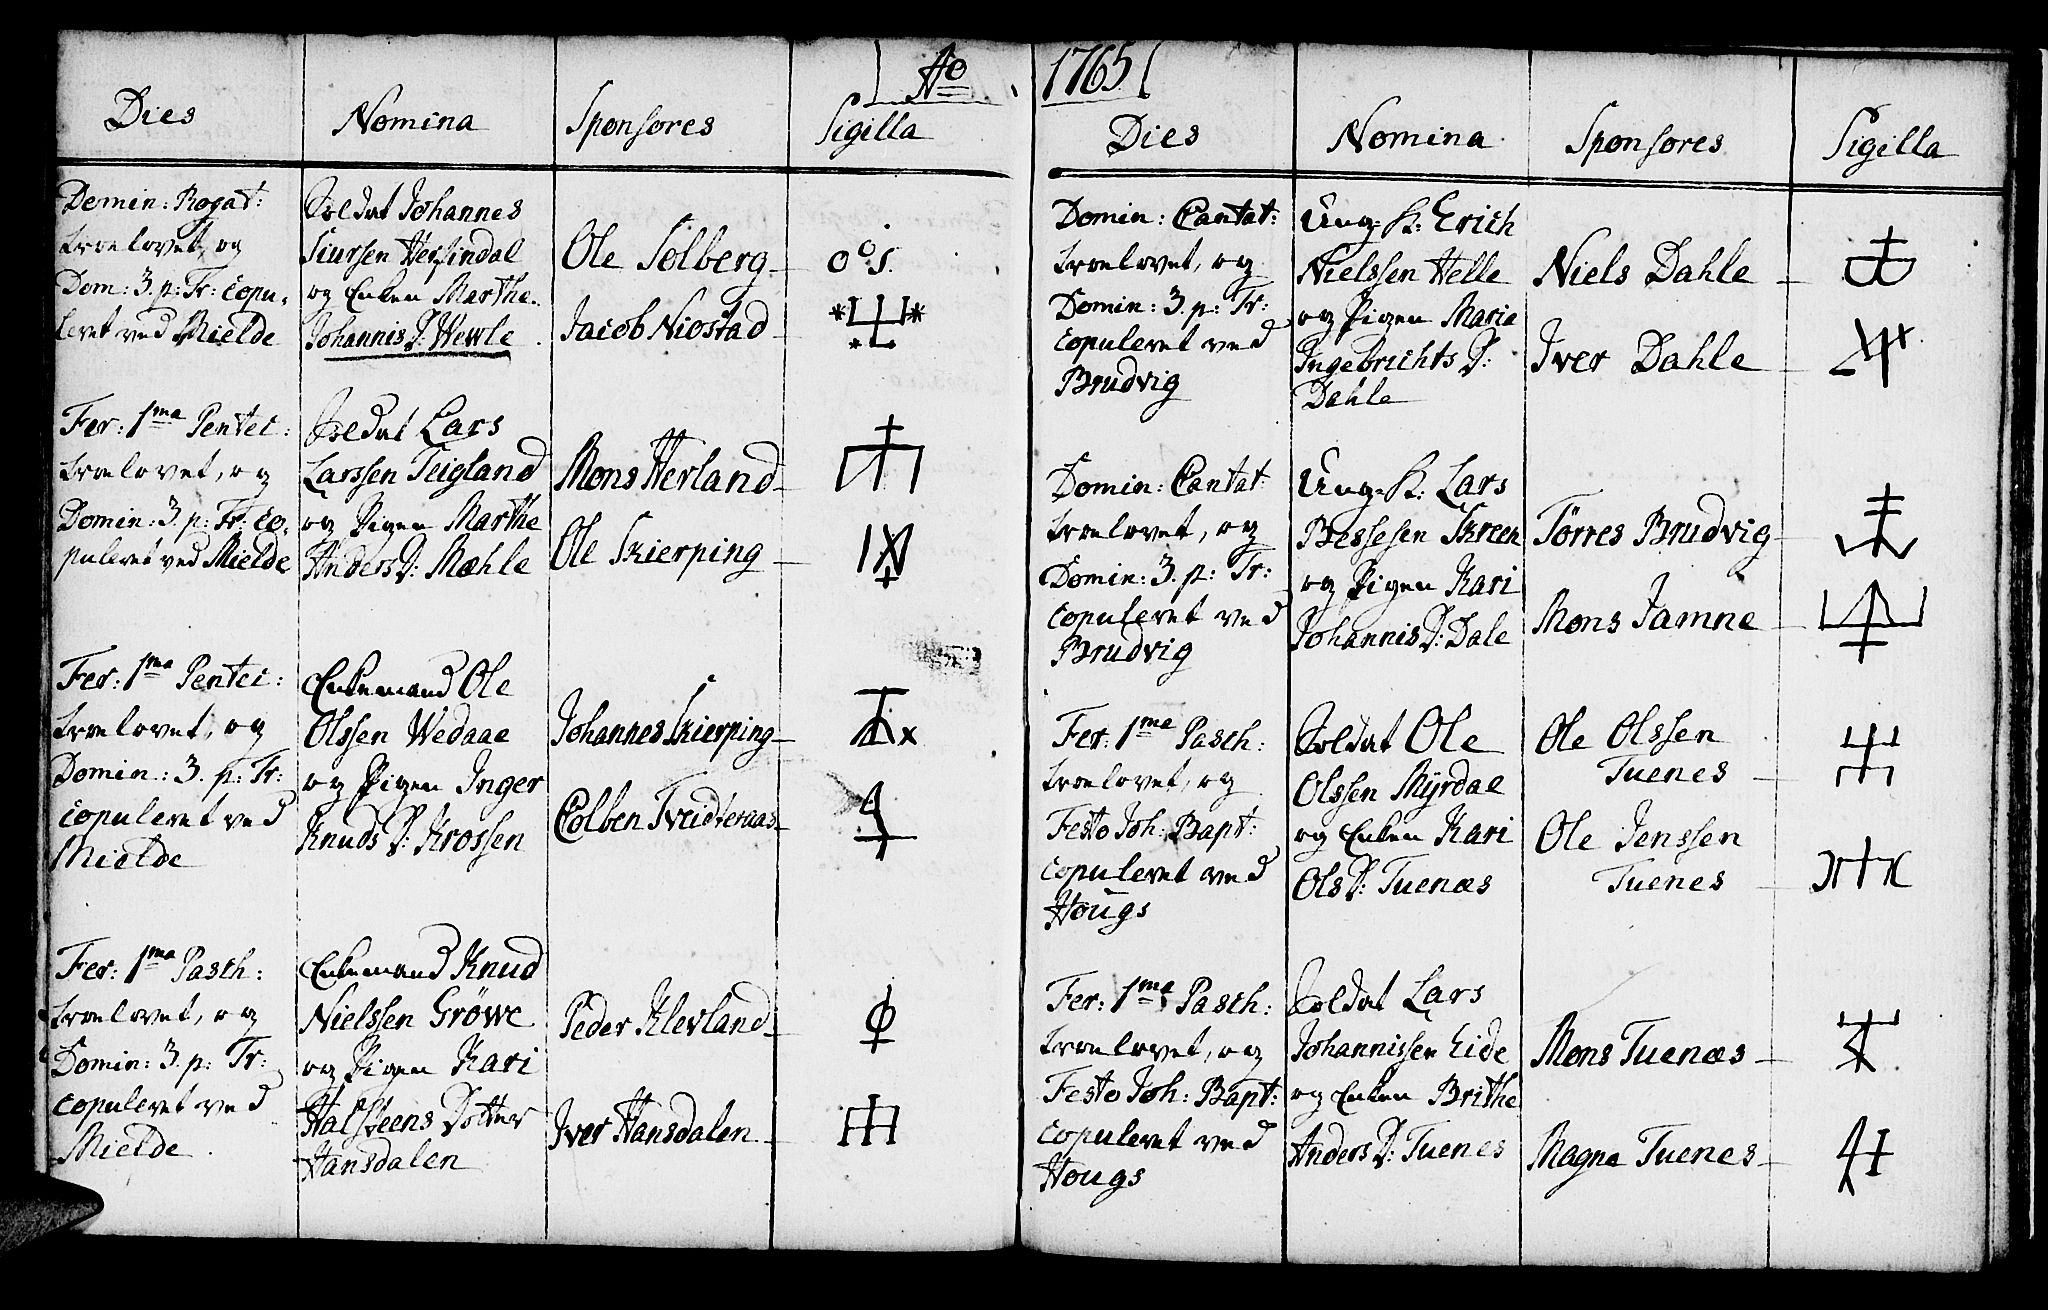 Ao 1765
Dies Nomina Sponsores Sigilla
Domin: Rogat:
troelovet, og
Dom: 3. p: Tr: copu-
leret ved Mielde
Soldat Johannes
Siursen Hersindal
og Enken Marthe
Johannis D: Wewle
Ole Solberg
Jacob Niostad
O O S.
Fer: 1ma Pentec:
troelovet, og
Domin: 3. p: Tr: co-
puleret ved Mielde
Soldat Lars
Larssen Teigland
og Pigen Marthe
Anders D: Mæhle
Mons Herland
Ole Skierping
Fer: 1ma Pentec:
troelovet, og
Domin: 3. p: Tr:
copuleret ved
Mielde
Enkemand Ole
Olssen Wedaae
og Pigen Inger
Knuds D: Krossen
Johannes Skierping
Colben Tveidteraas
Fer: 1ma Pasch:
troelovet, og
Domin: 3. p: Tr:
copuleret ved
Mielde
Enkemand Knud
Nielssen Gröwe
og Pigen Kari
Halsteens Dotter
Hansdalen
Peder Klevland
Iver Hansdalen
Dies Nomina Sponsores Sigilla
Domin: Cantat:
troelovet, og
Domin: 3. p: Tr:
copuleret ved
Brudvig
Ung-K: Erich
Nielssen Helle
og Pigen Marie
Ingebrichts D:
Dahle
Niels Dahle
Iver Dahle
Domin: Cantat:
troelovet, og
Domin: 3. p: Tr:
copuleret ved
Brudvig
Ung-K: Lars
Bessesen Skreen
og Pigen Kari
Johannis D: Dale
Törres Brudvig
Mons Jamne
Fer: 1ma Pasch:
troelovet, og
Festo Joh: Bapt:
copuleret ved
Hougs
Soldat Ole
Olssen Myrdal
og Enken Kari
Ols D: Tuenæs
Ole Olssen
Tuenes
Ole Jenssen
Tuenes
Fer: 1ma Pasch:
troelovet, og
Festo Joh: Bapt:
copuleret ved
Hougs
Soldat Lars
Johannissen Eide
og Enken Brithe
Anders D: Tuenes
Mons Tuenæs
Magne Tuenes